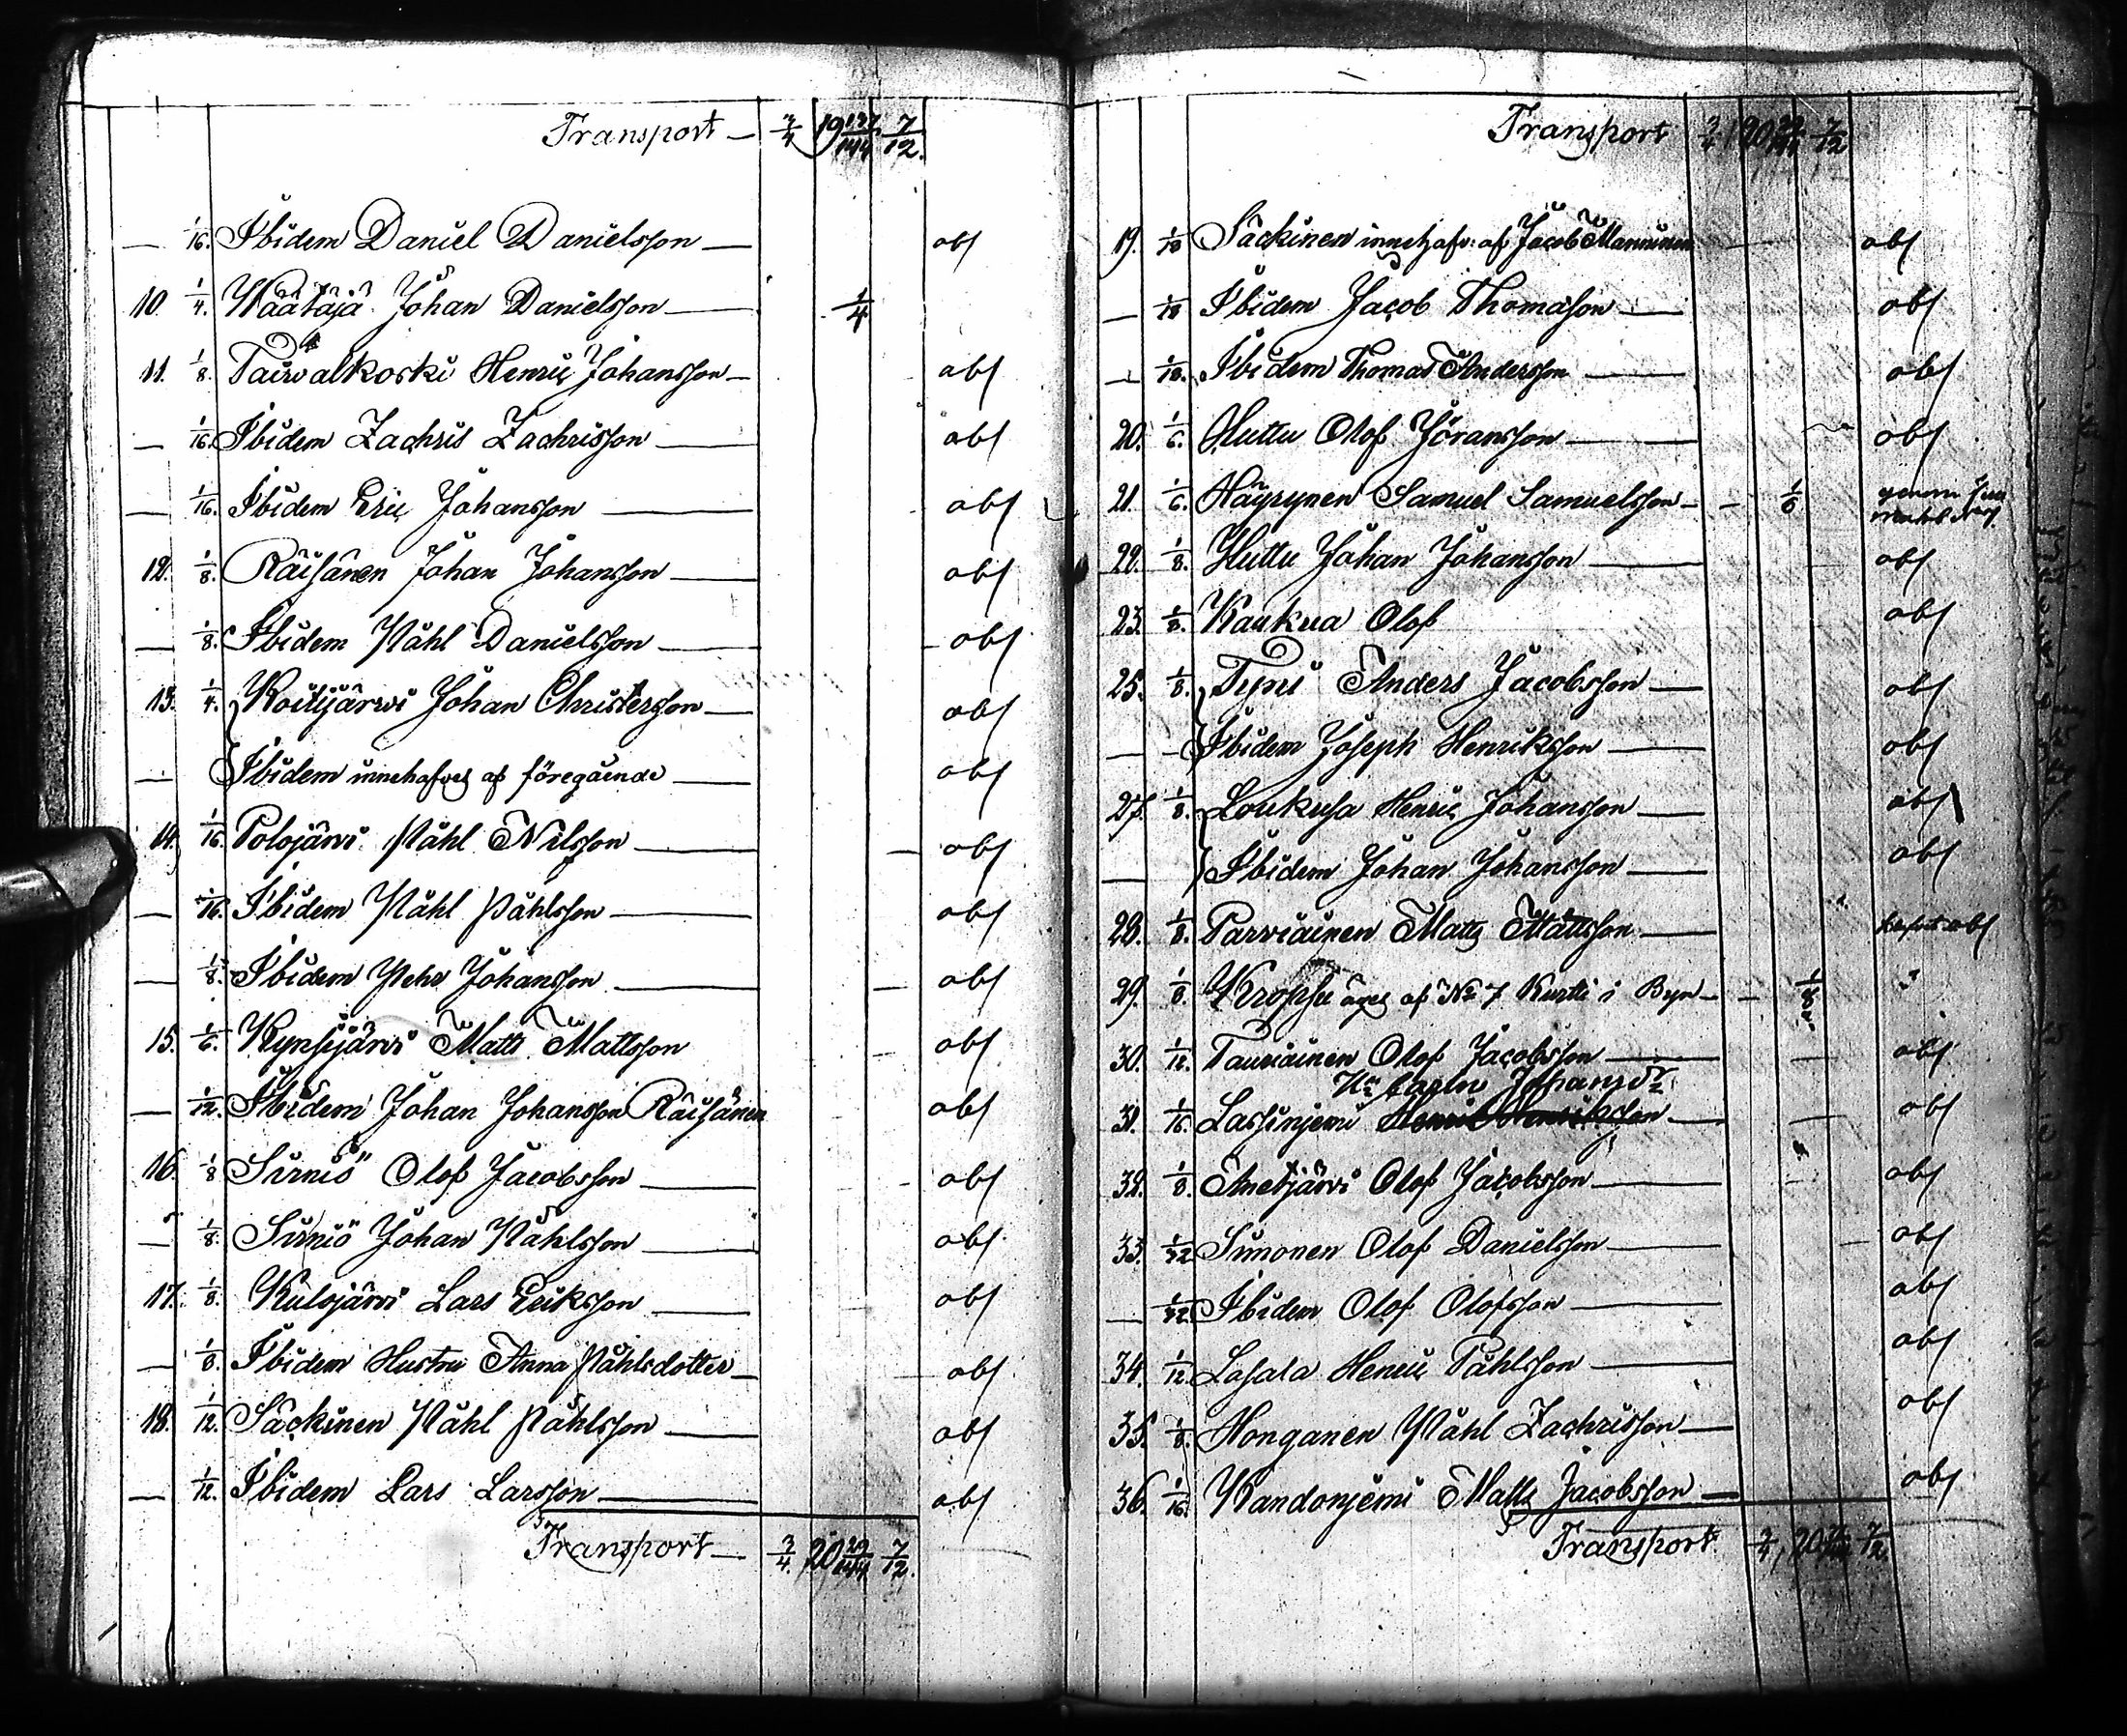 Transport — 3/4 19 137/144 7/12.
— 1/16. Ibidem Daniel Danielsson — obs
10 1/4. Wäätäjä Johan Danielsson — 1/4
11. 1/8. Taivalkoski Henric Johansson — obs
— 1/16. Ibidem Zachris Zachrisson — obs
— 1/16. Ibidem Eric Johansson — obs
12. 1/8. Räisänen Johan Johansson — obs
— 1/8. Ibidem Påhl Danielsson — obs
13. 1/4. Koitijärwi Johan Christersson — obs
— Ibidem innehafves af föregående — obs
14. 1/16. Polojärvi Påhl Nilsson — obs
— 1/16. Ibidem Påhl Påhlsson — obs
— 1/8. Ibidem Pehr Johansson — obs
15. 1/6. Kynsijärvi Matts Mattsson obs
— 1/12. Ibidem Johan Johansson Räisänen obs
16. 1/8 Sirniö Olof Jacobsson — obs
— 1/8. Sirniö Johan Påhlsson — obs
17. 1/8. Kulojärvi Lars Eriksson — obs
— 1/8. Ibidem Hustru Anna Påhlsdotter — obs
18. 1/12. Säckinen Påhl Påhlsson — obs
— 1/12. Ibidem Lars Larsson — obs
Transport — 3/4. 20 29/144 7/12.
Transport 3/4 20 29/144 7/12
19. 1/18 Säckinen innehafv: af Jacob Manninen — obs
— 1/18 Ibidem Jacob Thomasson — obs
— 1/18. Ibidem Thomas Andersson — obs
20. 1/6. Huttu Olof Jöransson — obs
21. 1/6. Häyrynen Samuel Samuelsson — 1/6
22. 1/8. Huttu Johan Johansson — obs
23. 1/8. Kaukua Olof obs
25. 1/8. Tyni Anders Jacobsson — obs
— Ibidem Joseph Henriksson — obs
27. 1/8. Loukusa Henric Johansson — obs
— Ibidem Johan Johansson — obs
28. 1/8. Parviainen Matts Mattsson — obs
29. 1/8 Kropsu äges af No 7 Kurtti i Byn — 1/8 "
30. 1/12. Tauriainen Olof Jacobsson — obs
Carin Johansdr
31. 1/16. Lassinjemi Henric Henriksson — obs
32. 1/8. Anetjärvi Olof Jacobsson — obs
33. 1/32 Simonen Olof Danielsson — obs
— 1/32 Ibidem Olof Olofsson — obs
34. 1/12. Lasala Henric Påhlsson — obs
35. 1/8. Honganen Påhl Zachrisson — obs
36. 1/16. Kandonjemi Matts Jacobsson — obs
Transport 3/4, 20 7/12